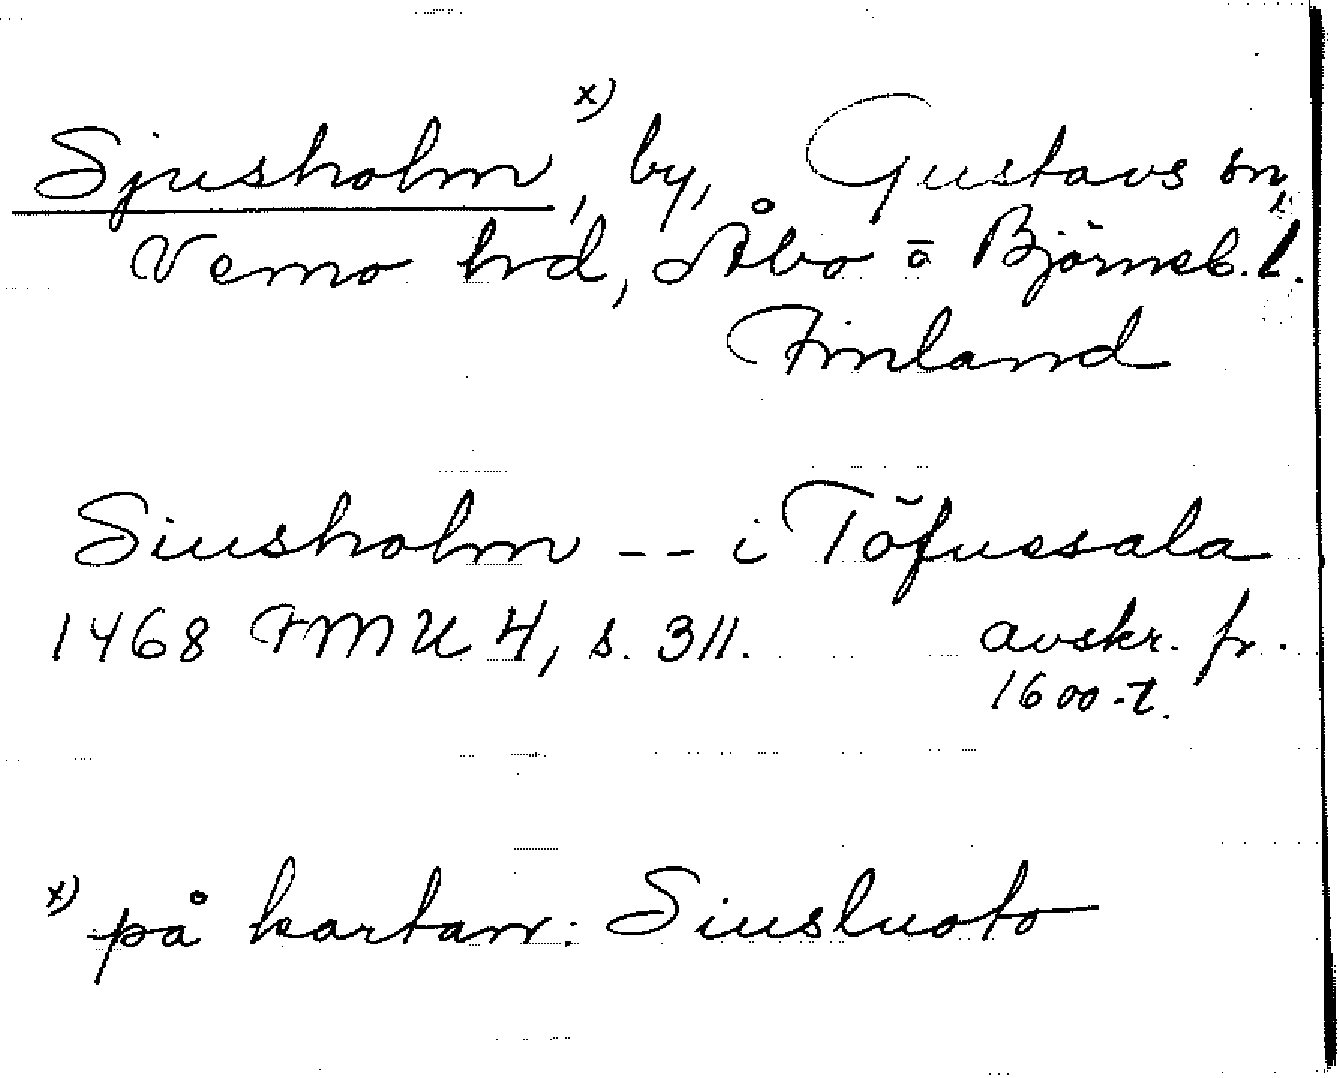 Sjusholm x), by, Gustavs sn,
Vemo hrd, Åbo o Björneb. l.
Finland
Siusholm -- i Töfuesala
1468 FMU 4, s. 311. avskr. fr.
1600-t.
x) på kartan: Siusluoto